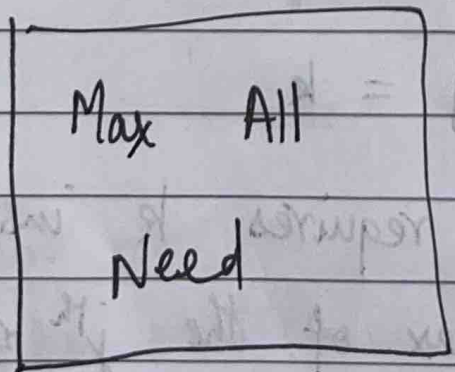 Max All
Need